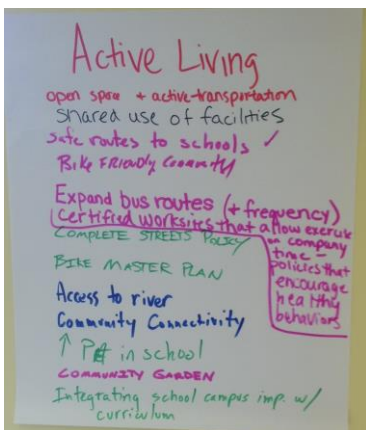 Active Living
open space + active-transportation
Shared use of facilities
Safe routes to schools ✓
Bike FRIENDLY Community
Expand bus routes (+ frequency)
Certified worksites that allow exercise
on company
time -
policies that
encourage
healthy
behaviors
COMPLETE STREETS POLICY
BIKE MASTER PLAN
Access to river
Community Connectivity
↑ PE in school
COMMUNITY GARDEN
Integrating school campus imp. w/
curriculum